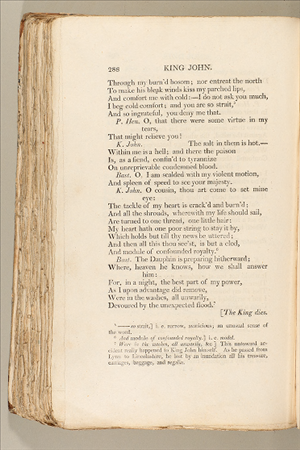 288 KING JOHN.
Through my burn'd bosom; nor entreat the north
To make his bleak winds kiss my parched lips,
And comfort me with cold:—I do not ask you much,
I beg cold comfort; and you are so strait,
And so ingrateful, you deny me that.
P. Hen. O, that there were some virtue in my
tears,
That might relieve you!
K. John. The salt in them is hot.—
Within me is a hell; and there the poison
Is, as a fiend, confin'd to tyrannize
On unreprievable condemned blood.
Bast. O, I am scalded with my violent motion,
And spleen of speed to see your majesty.
K. John. O cousin, thou art come to set mine
eye:
The tackle of my heart is crack'd and burn'd;
And all the shrouds, wherewith my life should sail,
Are turned to one thread, one little hair:
My heart hath one poor string to stay it by,
Which holds but till thy news be uttered;
And then all this thou see'st, is but a clod,
And module of confounded royalty.
Bast. The Dauphin is preparing hitherward;
Where, heaven he knows, how we shall answer
him:
For, in a night, the best part of my power,
As I upon advantage did remove,
Were in the washes, all unwarily,
Devoured by the unexpected flood.
[The King dies.
— so strait,] i. e. narrow, avaricious; an unusual sense of
the word.
And module of confounded royalty.] i. e. model.
Were in the washes, all unwarily, &c.] This untoward ac-
cident really happened to King John himself. As he passed from
Lynn to Lincolnshire, he lost by an inundation all his treasure,
carriages, baggage, and regalia.